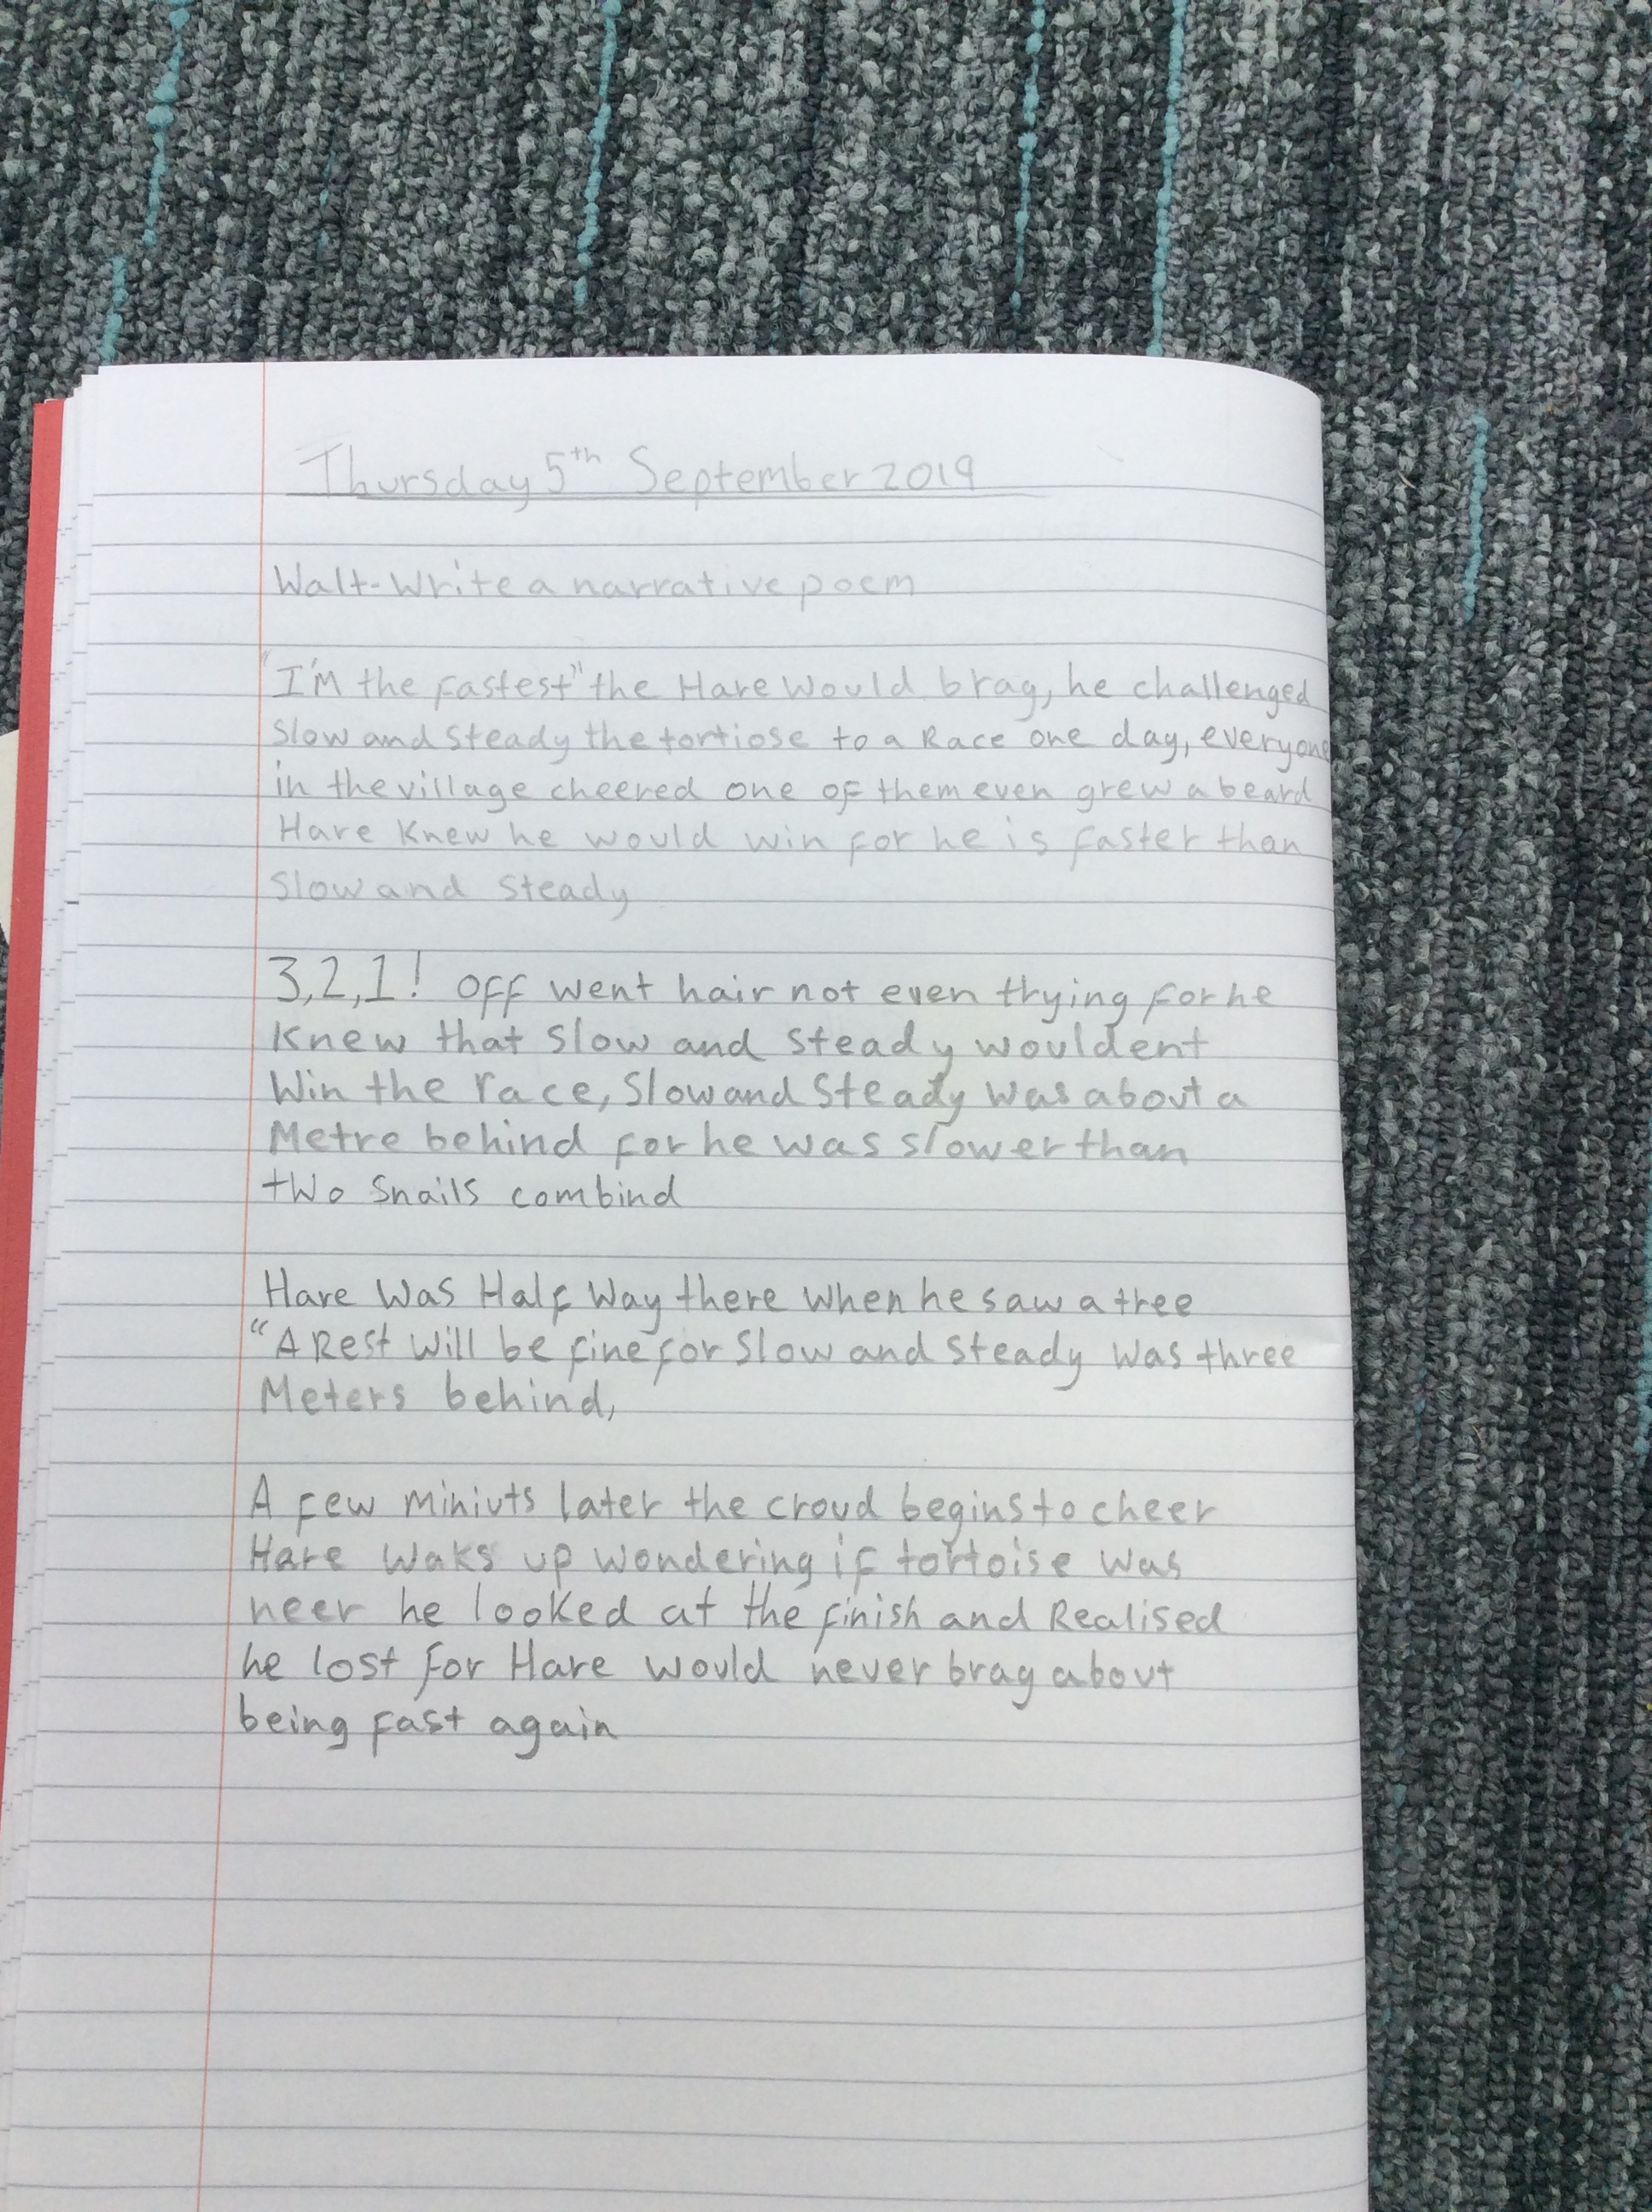 Thursday 5th September 2019
Walt-Write a narrative poem
"I'm the fastest" the Hare would brag, he challenged
Slow and steady the tortiose to a Race one day, everyone
in the village cheered one of them even grew a beard
Hare Knew he would win for he is faster than
Slow and steady
3,2,1! off went hair not even trying for he
Knew that slow and steady wouldent
Win the race, Slow and steady was about a
Metre behind for he was slower than
two snails combind
Hare was Half way there when he saw a tree
"A Rest will be fine for Slow and steady was three
Meters behind,
A few miniuts later the croud begins to cheer
Hare waks up wondering if tortoise was
neer he looked at the finish and Realised
he lost for Hare would never brag about
being fast again